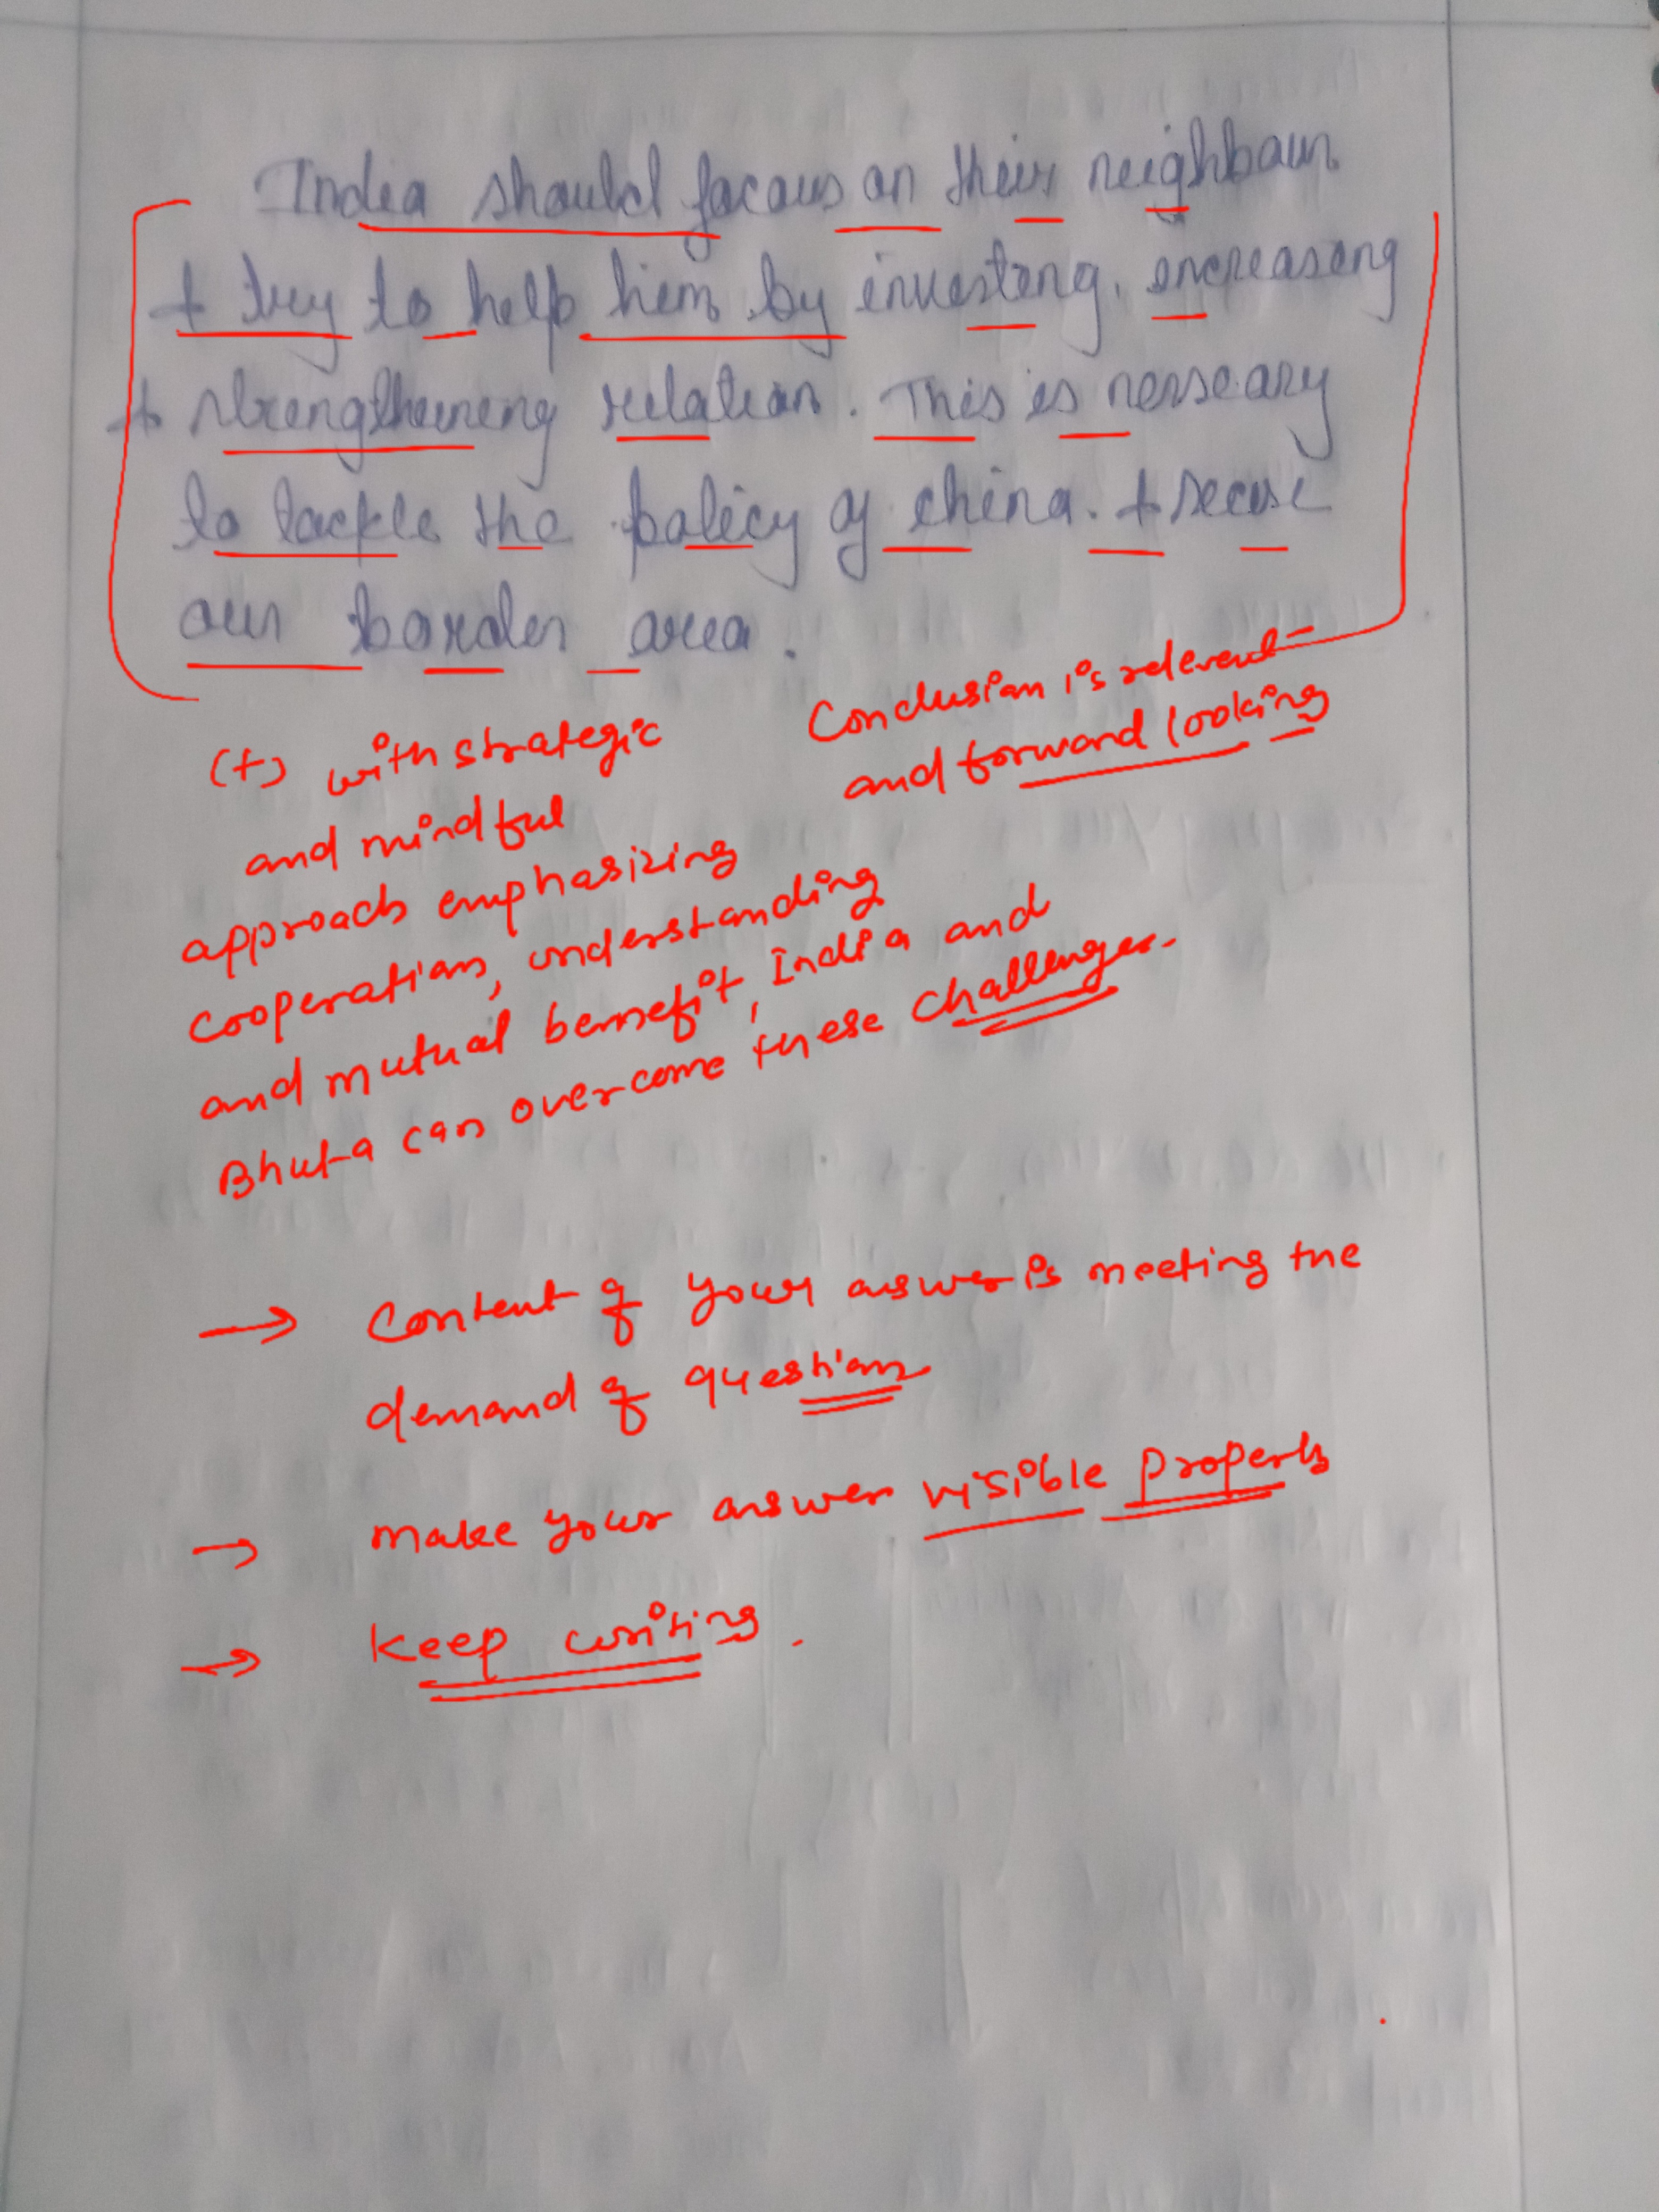 India should focous on their neighbour
+ try to help him by investing, increasing
+ strengtheineng relation. This is nersseary
to tackle the policy of china. + secuse
our border area.
Conclusion is relevent
and forward looking
(+) with strategic
and mindful
approach emphasizing
cooperation, understanding
and mutual bemefit, India and
Bhuta can overcome these challenges.
→ Content of your answer is meeting the
demand of question
→ make your answer visible properly
→ Keep writing.